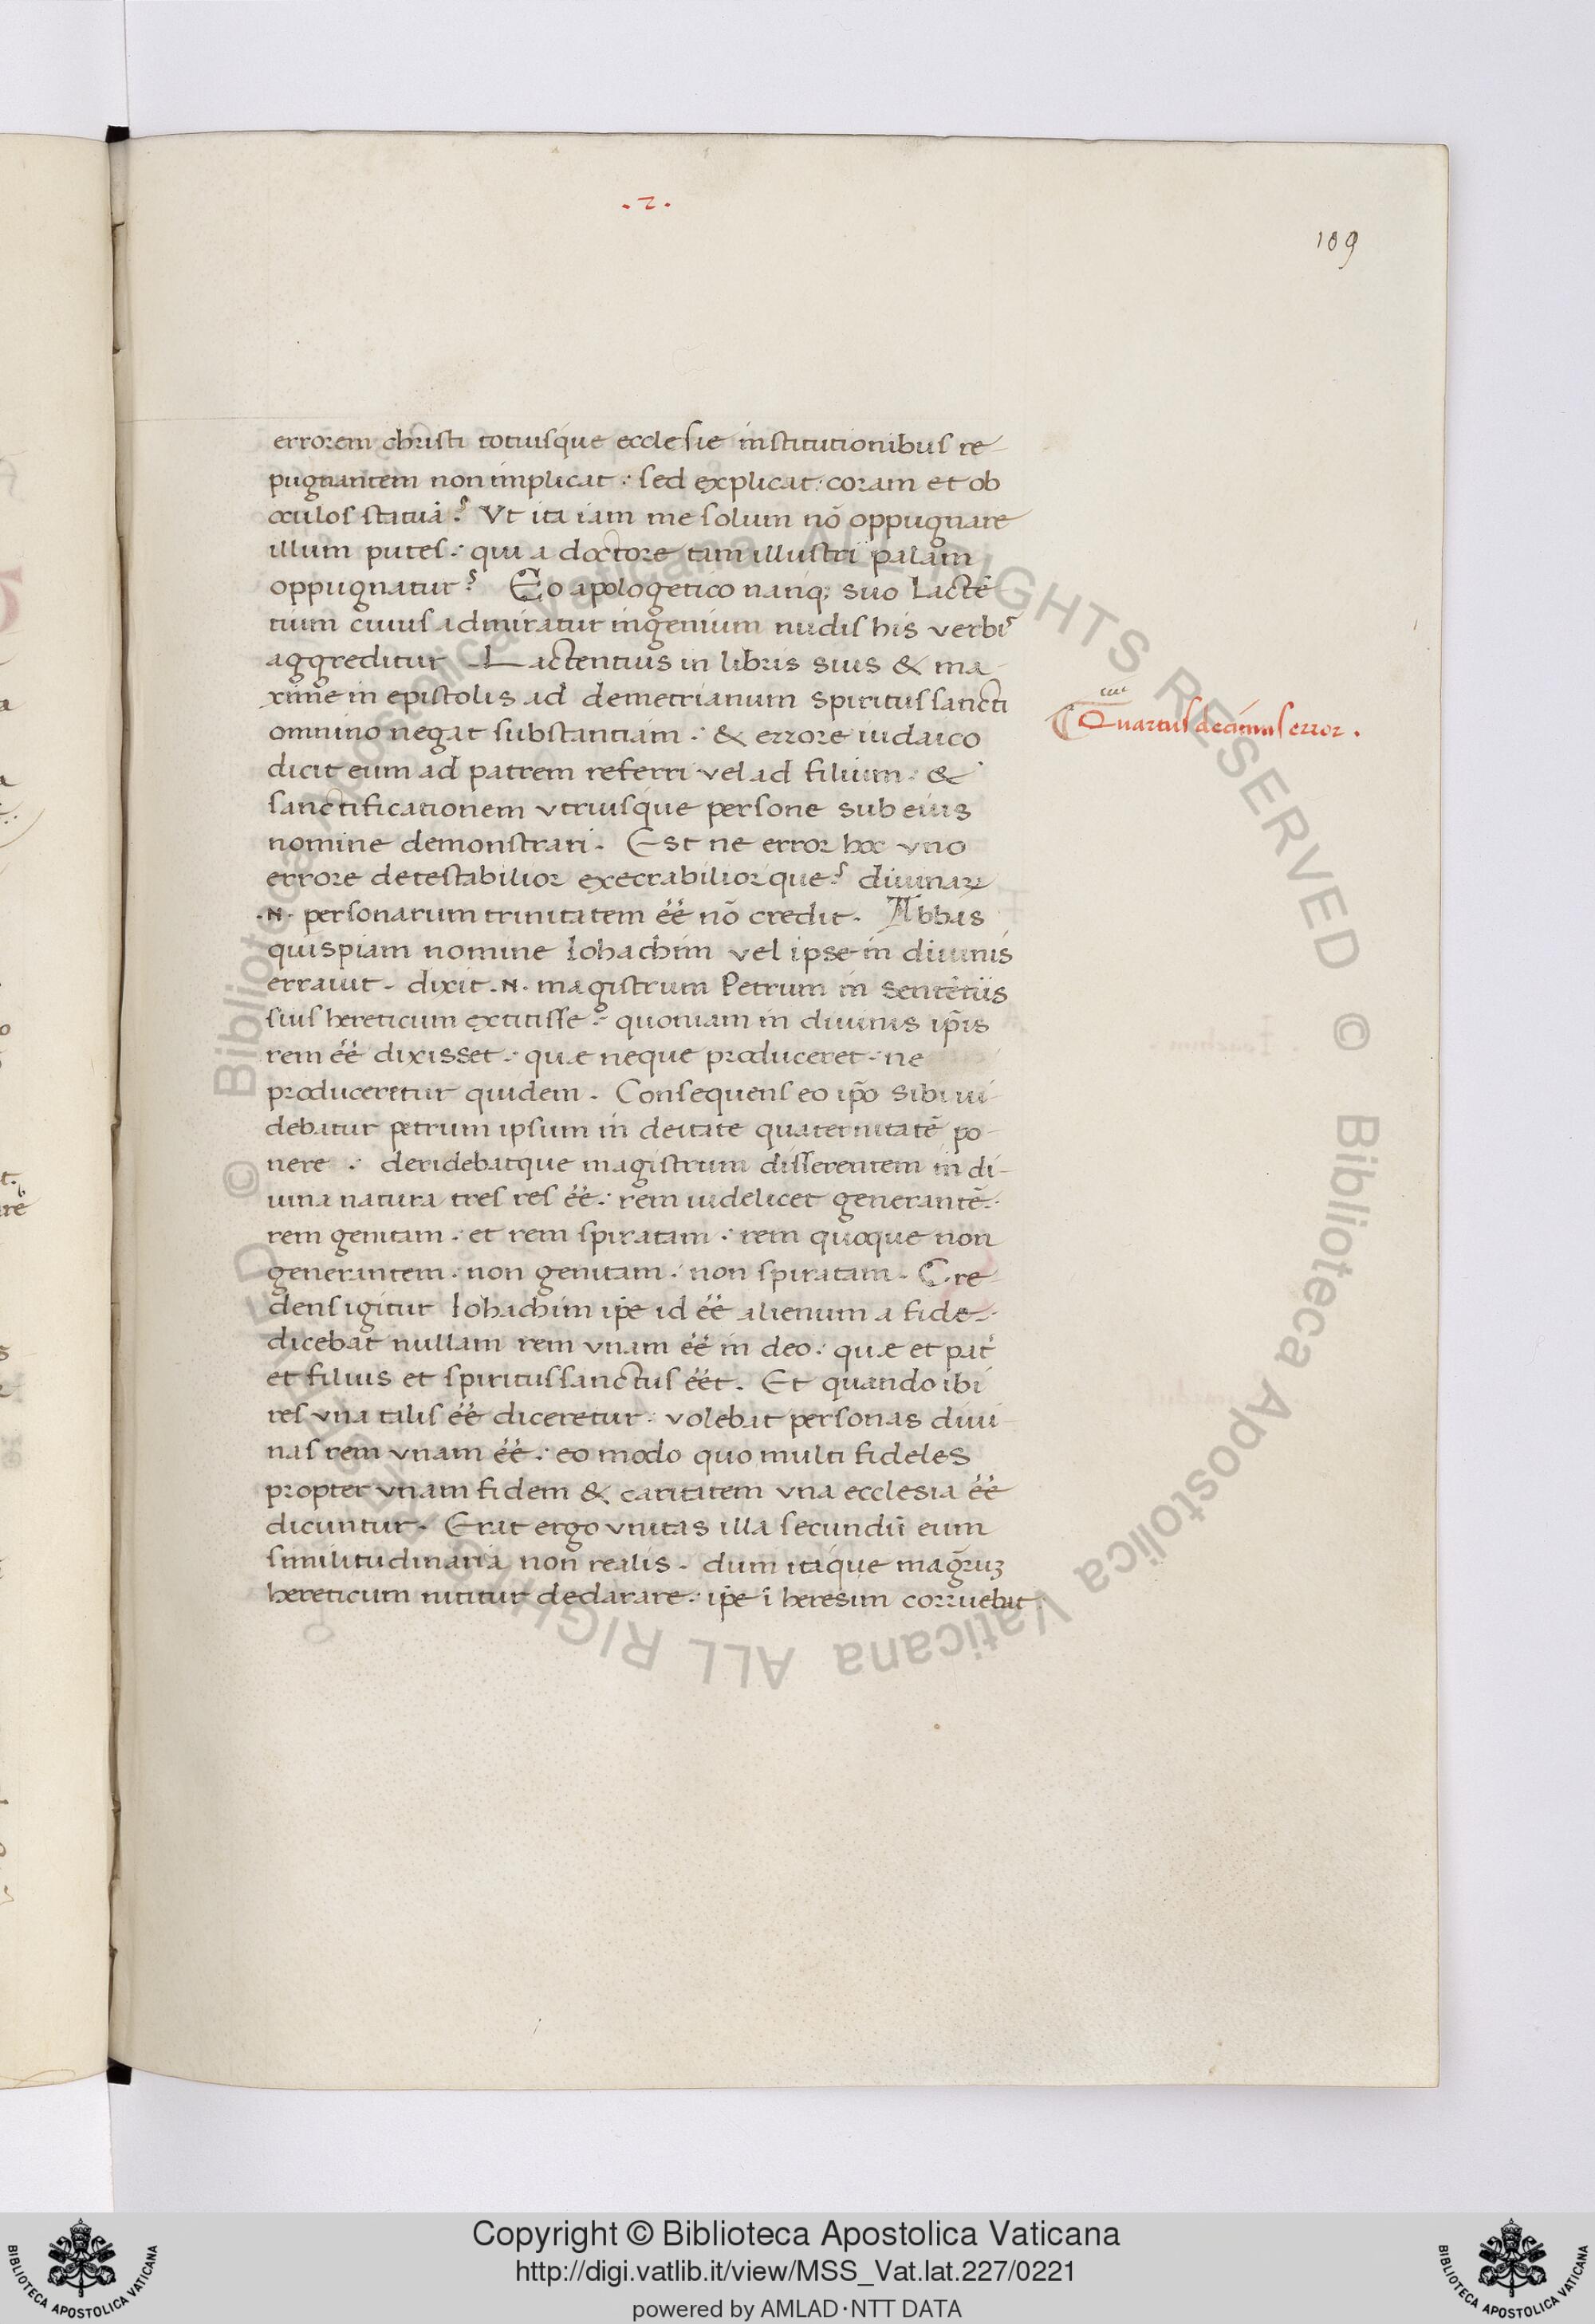 .2.
109
errorem christi totiusque ecclesie institutionibus re-
pugnantem non implicat: sed explicat: coram et ob
oculos statuā? Vt ita iam me solum nō oppugnare
illum putes: qui a doctore tam illustri palam
oppugnatur? Eo apologetico nanq; suo Lactē-
tium cuius admiratur ingenium nudis his verbis
aggreditur Lactentius in libris suis & ma-
xime in epistolis ad demetrianum spiritus sancti
omnino negat substantiam: & errore iudaico
dicit eum ad patrem referri vel ad filium: &
sanctificationem vtriusque persone sub eius
nomine demonstrari. Est ne error hoc vno
errore detestabilior execrabiliorque? diuinaꝝ
.N. personarum trinitatem éé nō credit. Abbas
quispiam nomine Iohachim vel ipse in diuinis
errauit. dixit .N. magistrum Petrum in sentētiis
suis hereticum extitisse: quoniam in diuinis ip̄is
rem éé dixisset: quae neque produceret: ne
produceretur quidem. Consequens eo ip̄o sibi ui-
debatur petrum ipsum in deitate quaternitatē po-
nere: deridebatque magistrum disserentem in di-
uina natura tres res éé: rem uidelicet generantē:
rem genitam: et rem spiratam: rem quoque non
generantem: non genitam: non spiratam. Cre-
dens igitur Iohachim ip̄e id éé alienum a fide:
dicebat nullam rem vnam éé in deo: quae et pat̄
et filius et spiritus sanctus éét. Et quando ibi
res vna talis éé diceretur: volebat personas diui-
nas rem vnam éé: eo modo quo multi fideles
propter vnam fidem & caritatem vna ecclesia éé
dicuntur. Erit ergo vnitas illa secundū eum
similitudinaria non realis. dum itaque mag̃ruꝫ
hereticum nititur declarare: ip̄e ī heresim corruebat:
Quartus decimus error.
© Biblioteca Apostolica Vaticana ALL RIGHTS RESERVED © Biblioteca Apostolica Vaticana ALL RIGHTS RESERVED
Copyright © Biblioteca Apostolica Vaticana
http://digi.vatlib.it/view/MSS_Vat.lat.227/0221
powered by AMLAD·NTT DATA
BIBLIOTECA APOSTOLICA VATICANA
BIBLIOTECA APOSTOLICA VATICANA